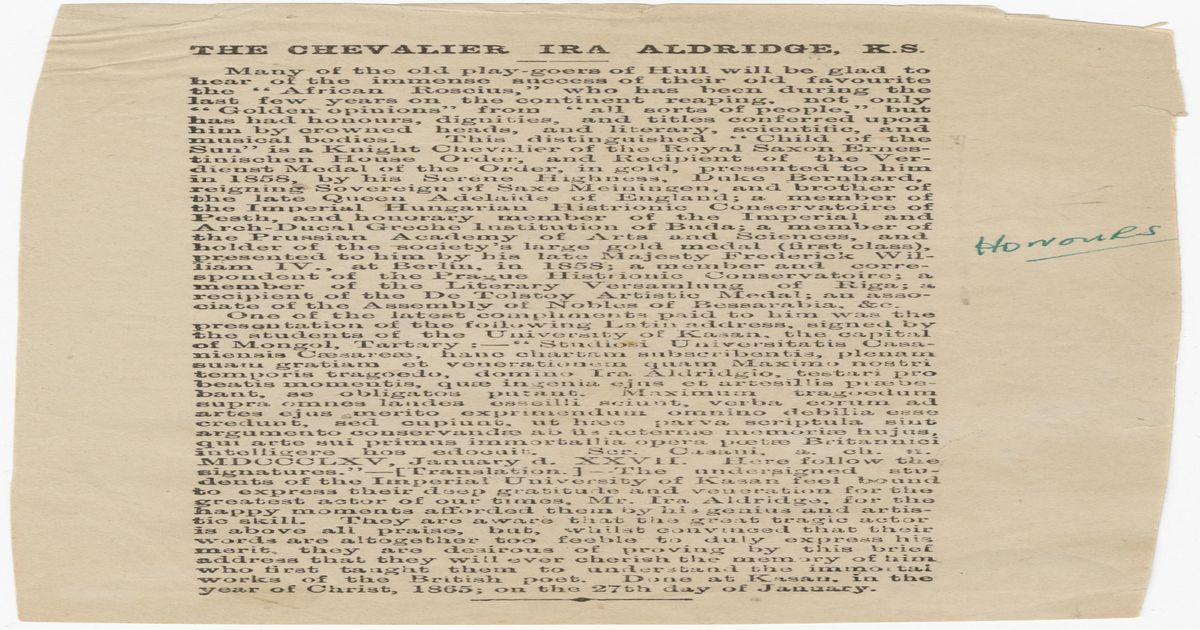 THE CHEVALIER IRA ALDRIDGE, K.S.
Many of the old play-goers of Hull will be glad to
hear of the immense success of their old favourite
the "African Roscius," who has been during the
last few years on the continent reaping, not only
"Golden opinions" from "all sorts of people," but
has had honours, dignities, and titles conferred upon
him by crowned heads, and literary, scientific, and
musical bodies. This distinguished "Child of the
Sun" is a Knight Chevalier of the Royal Saxon Ernes-
tinischen House Order, and Recipient of the Ver-
dienst Medal of the Order, in gold, presented to him
in 1858, by his Serene Highness, Duke Bernhard,
reigning Sovereign of Saxe Meiningen, and brother of
the late Queen Adelaide of England; a member of
the Imperial Hungarian Histrionic Conservatoire of
Pesth, and honorary member of the Imperial and
Arch-Ducal Greche Institution of Buda; a member of
the Prussian Academy of Arts and Sciences, and
holder of the society's large gold medal (first class),
presented to him by his late Majesty Frederick Wil-
liam IV., at Berlin, in 1858; a member and corre-
spondent of the Prague Histrionic Conservatoire; a
member of the Literary Versamlung of Riga; a
recipient of the De Tolstoy Artistic Medal; an asso-
ciate of the Assembly of Nobles of Bessarabia, &c.
One of the latest compliments paid to him was the
presentation of the following Latin address, signed by
the students of the University of Kasan, the capital
of Mongol, Tartary:—"Studiosi Universitatis Casa-
niensis Cæsareæ, hanc chartam subscribentis, plenam
suam gratiam et venerationem quam Maximo nostri
temporis tragoedo, domino Ira Aldridgio, testari pro
beatis momentis, quæ ingenia ejus et artesillis præbe-
bant, se obligatos putant. Maximum tragoedum
supra omnes laudes esseilli sciunt, verba eorum ad
artes ejus merito exprimendum omnino debilia esse
credunt, sed cupiunt, ut hæc parva scriptula sint
argumento conservandæ ab iis æternæ memoriæ hujus,
qui arte sui primus immortallia opera poetæ Britannici
intelligere hos edocuit. Scr. Casani, a. ch. n.
MDCCCLXV, January d. XXVII. Here follow the
signatures."—[Translation.]—The undersigned stu-
dents of the Imperial University of Kasan feel bound
to express their deep gratitude and veneration for the
greatest actor of our times, Mr. Ira Aldridge, for the
happy moments afforded them by his genius and artis-
tic skill. They are aware that the great tragic actor
is above all praise, but, whilst convinced that their
words are altogether too feeble to duly express his
merit, they are desirous of proving by this brief
address that they will ever cherish the memory of him
who first taught them to understand the immortal
works of the British poet. Done at Kasan, in the
year of Christ, 1865; on the 27th day of January.
HONOURS